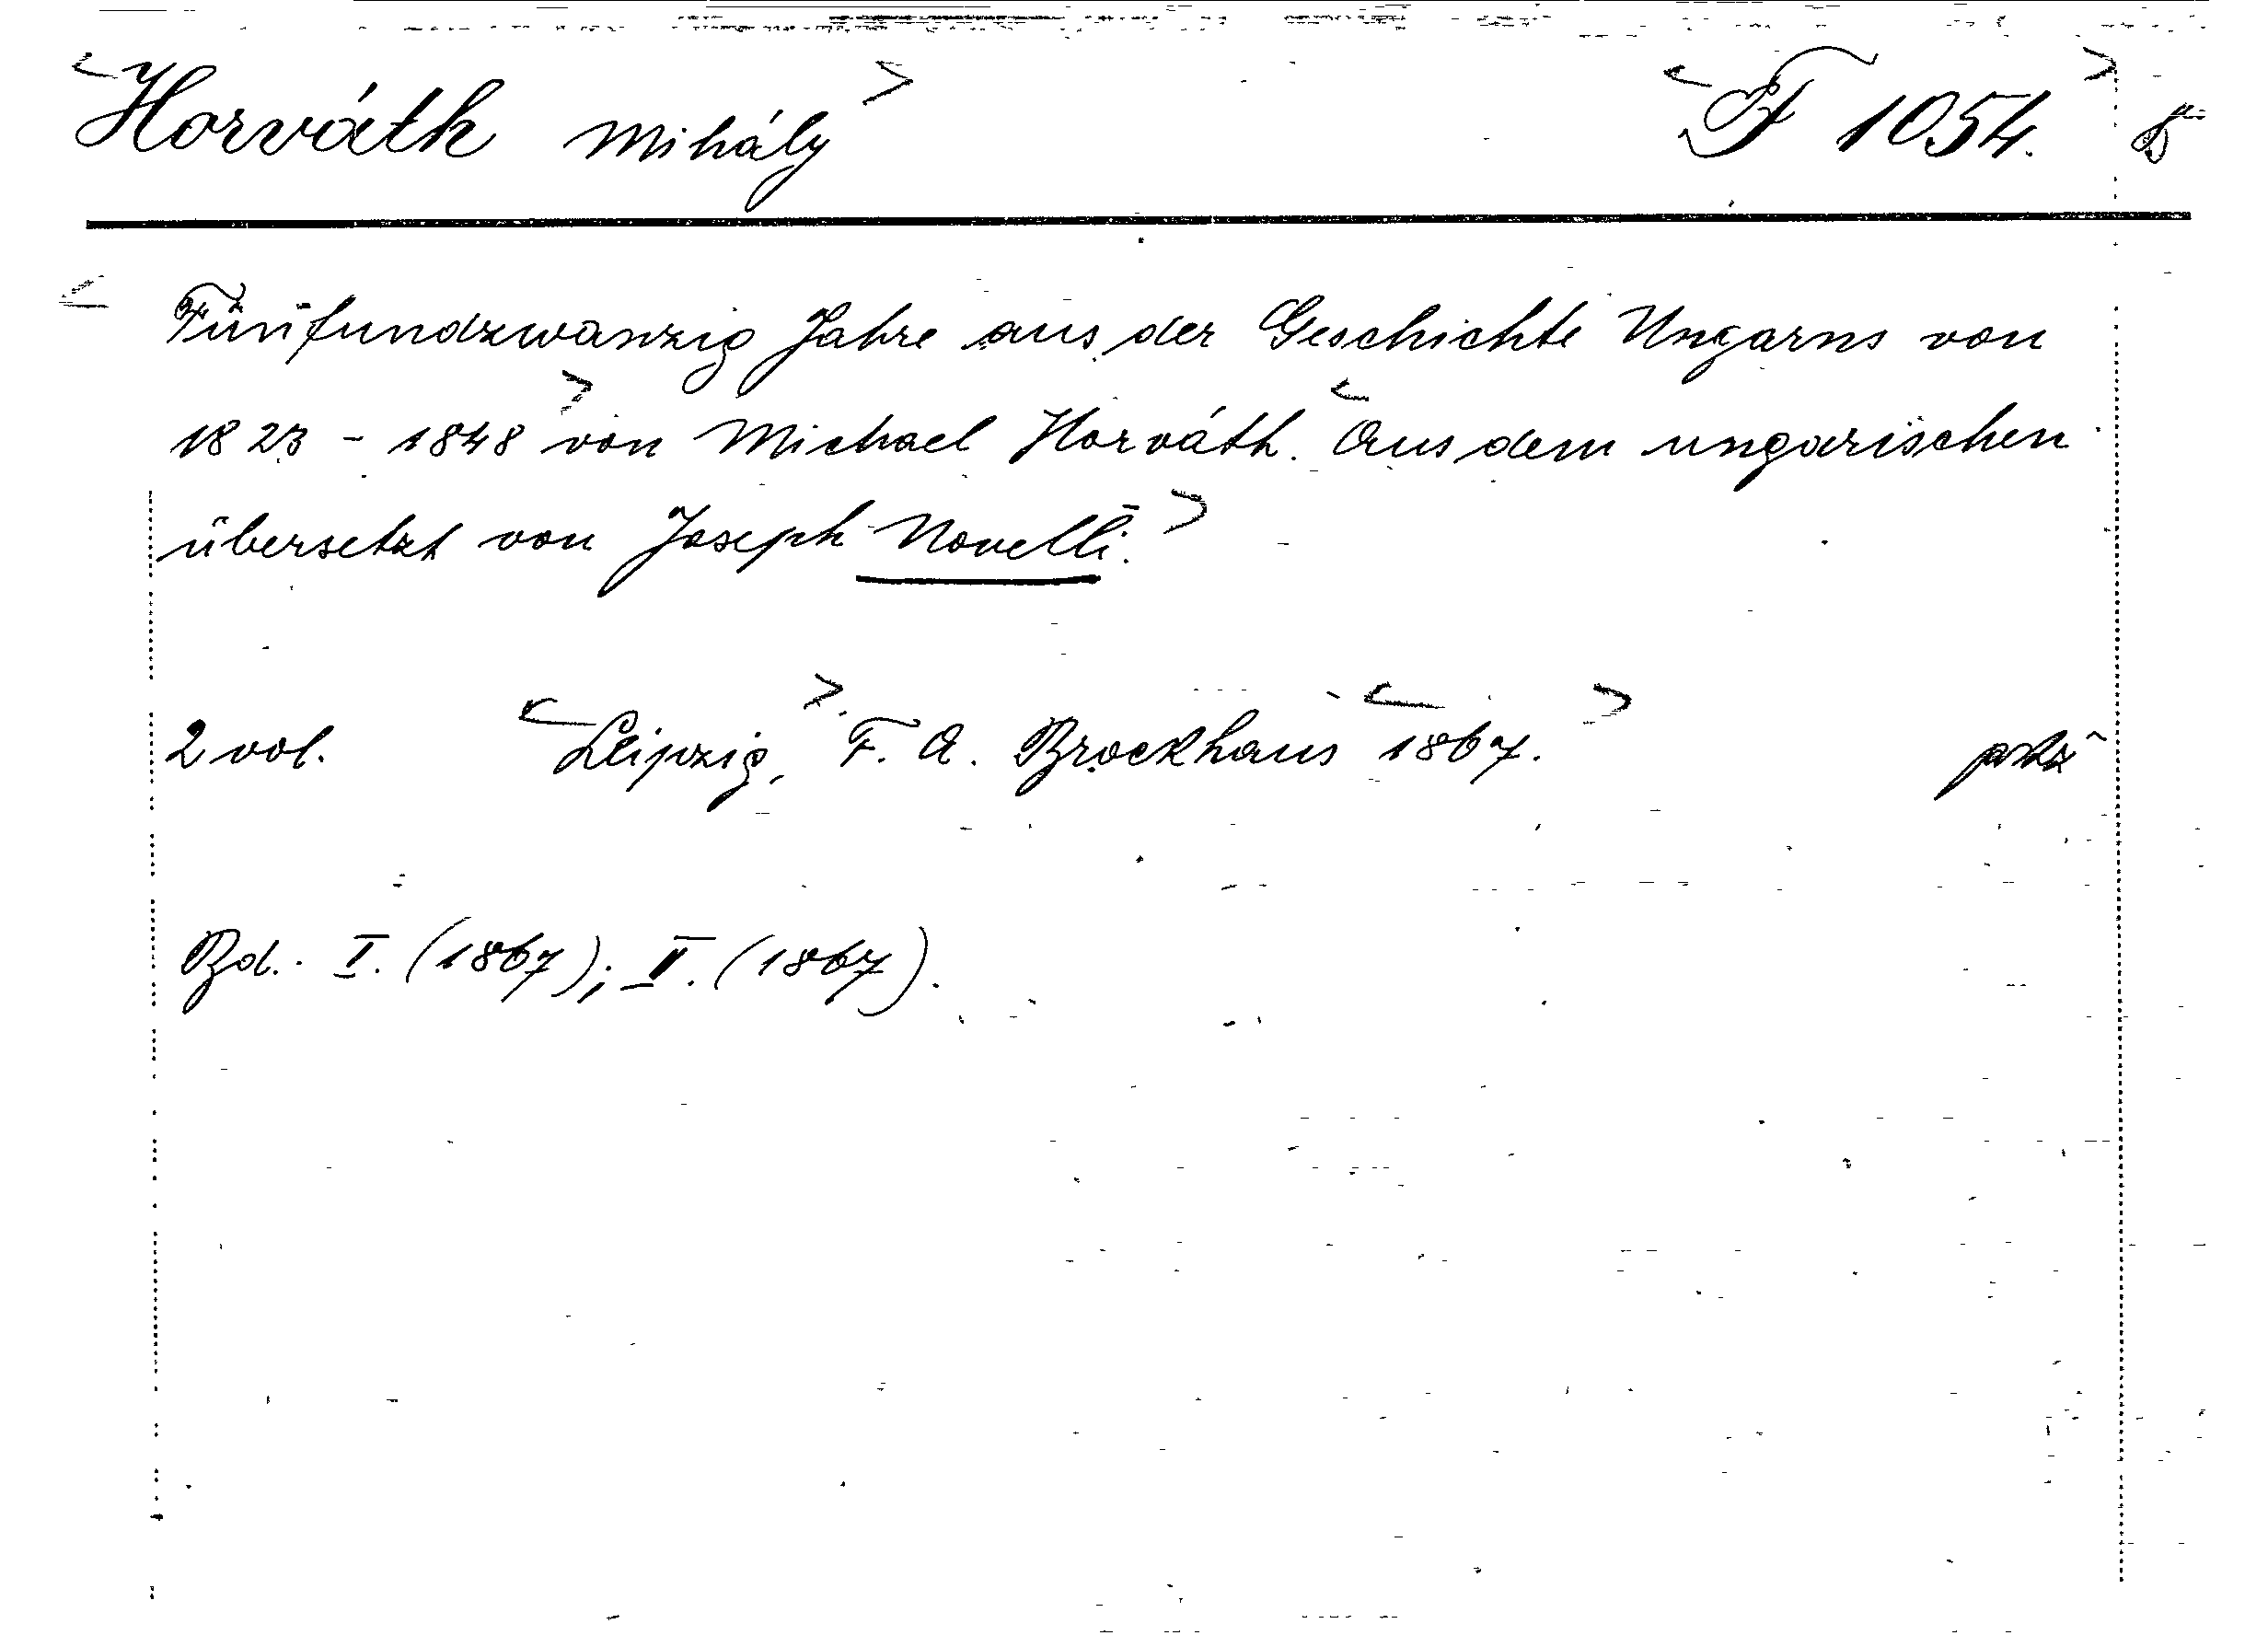 Horváth Mihály F 1054.
Fünfundzwanzig Jahre aus der Geschichte Ungarns von
1823 - 1848 von Michael Horváth. Aus dem ungarischen
übersetzt von Joseph Novelli.
2 vol. Leipzig, F. A. Brockhaus 1867.
Bd. I. (1867); II. (1867).